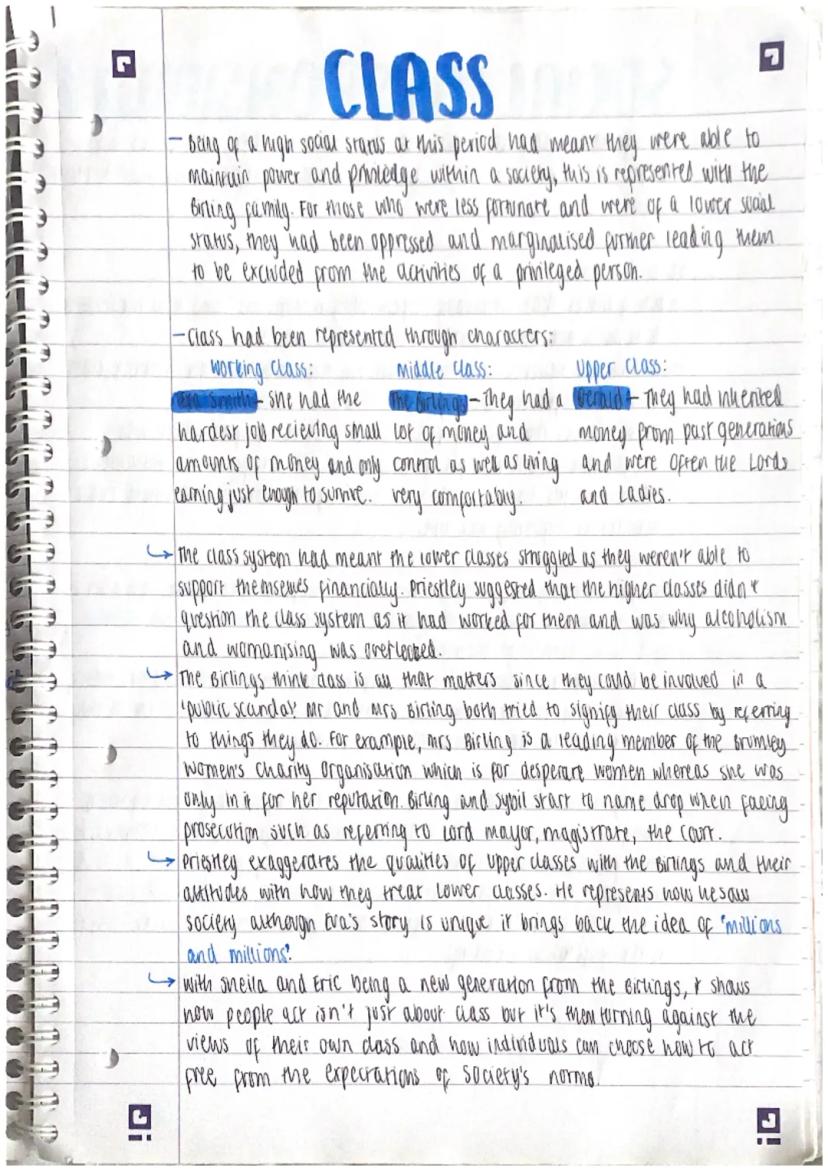 CLASS
- Being of a high social status at this period had meant they were able to
maintain power and priviledge within a society, this is represented with the
Birling family. For those who were less fortunate and were of a lower social
status, they had been oppressed and marginalised further leading them
to be excluded from the activities of a privileged person.
- Class had been represented through characters:
Working class: Middle class: Upper class:
Eva Smith - She had the The Birlings - They had a Gerald - They had inherited
hardest job recieving small lot of money and money from past generations
amounts of money and only control as well as living and were often the Lords
earning just enough to survive. very comfortably. and Ladies.
↳ The class system had meant the lower classes struggled as they weren't able to
support themselves financially. Priestley suggested that the higher classes didn't
question the class system as it had worked for them and was why alcoholism
and womanising was overlooked.
↳ The Birlings think class is all that matters since they could be involved in a
'public scandal'. Mr and Mrs Birling both tried to signify their class by referring
to things they do. For example, Mrs Birling is a leading member of the Brumley
Women's Charity Organisation which is for desperate women whereas she was
only in it for her reputation. Birling and Sybil start to name drop when facing
prosecution such as referring to Lord mayor, magistrate, the court.
↳ Priestley exaggerates the qualities of upper classes with the Birlings and their
attitudes with how they treat lower classes. He represents how he saw
society although Eva's story is unique it brings back the idea of 'millions
and millions'.
↳ With Sheila and Eric being a new generation from the Birlings, it shows
how people act isn't just about class but it's them turning against the
views of their own class and how individuals can choose how to act
free from the expectations of society's norms.